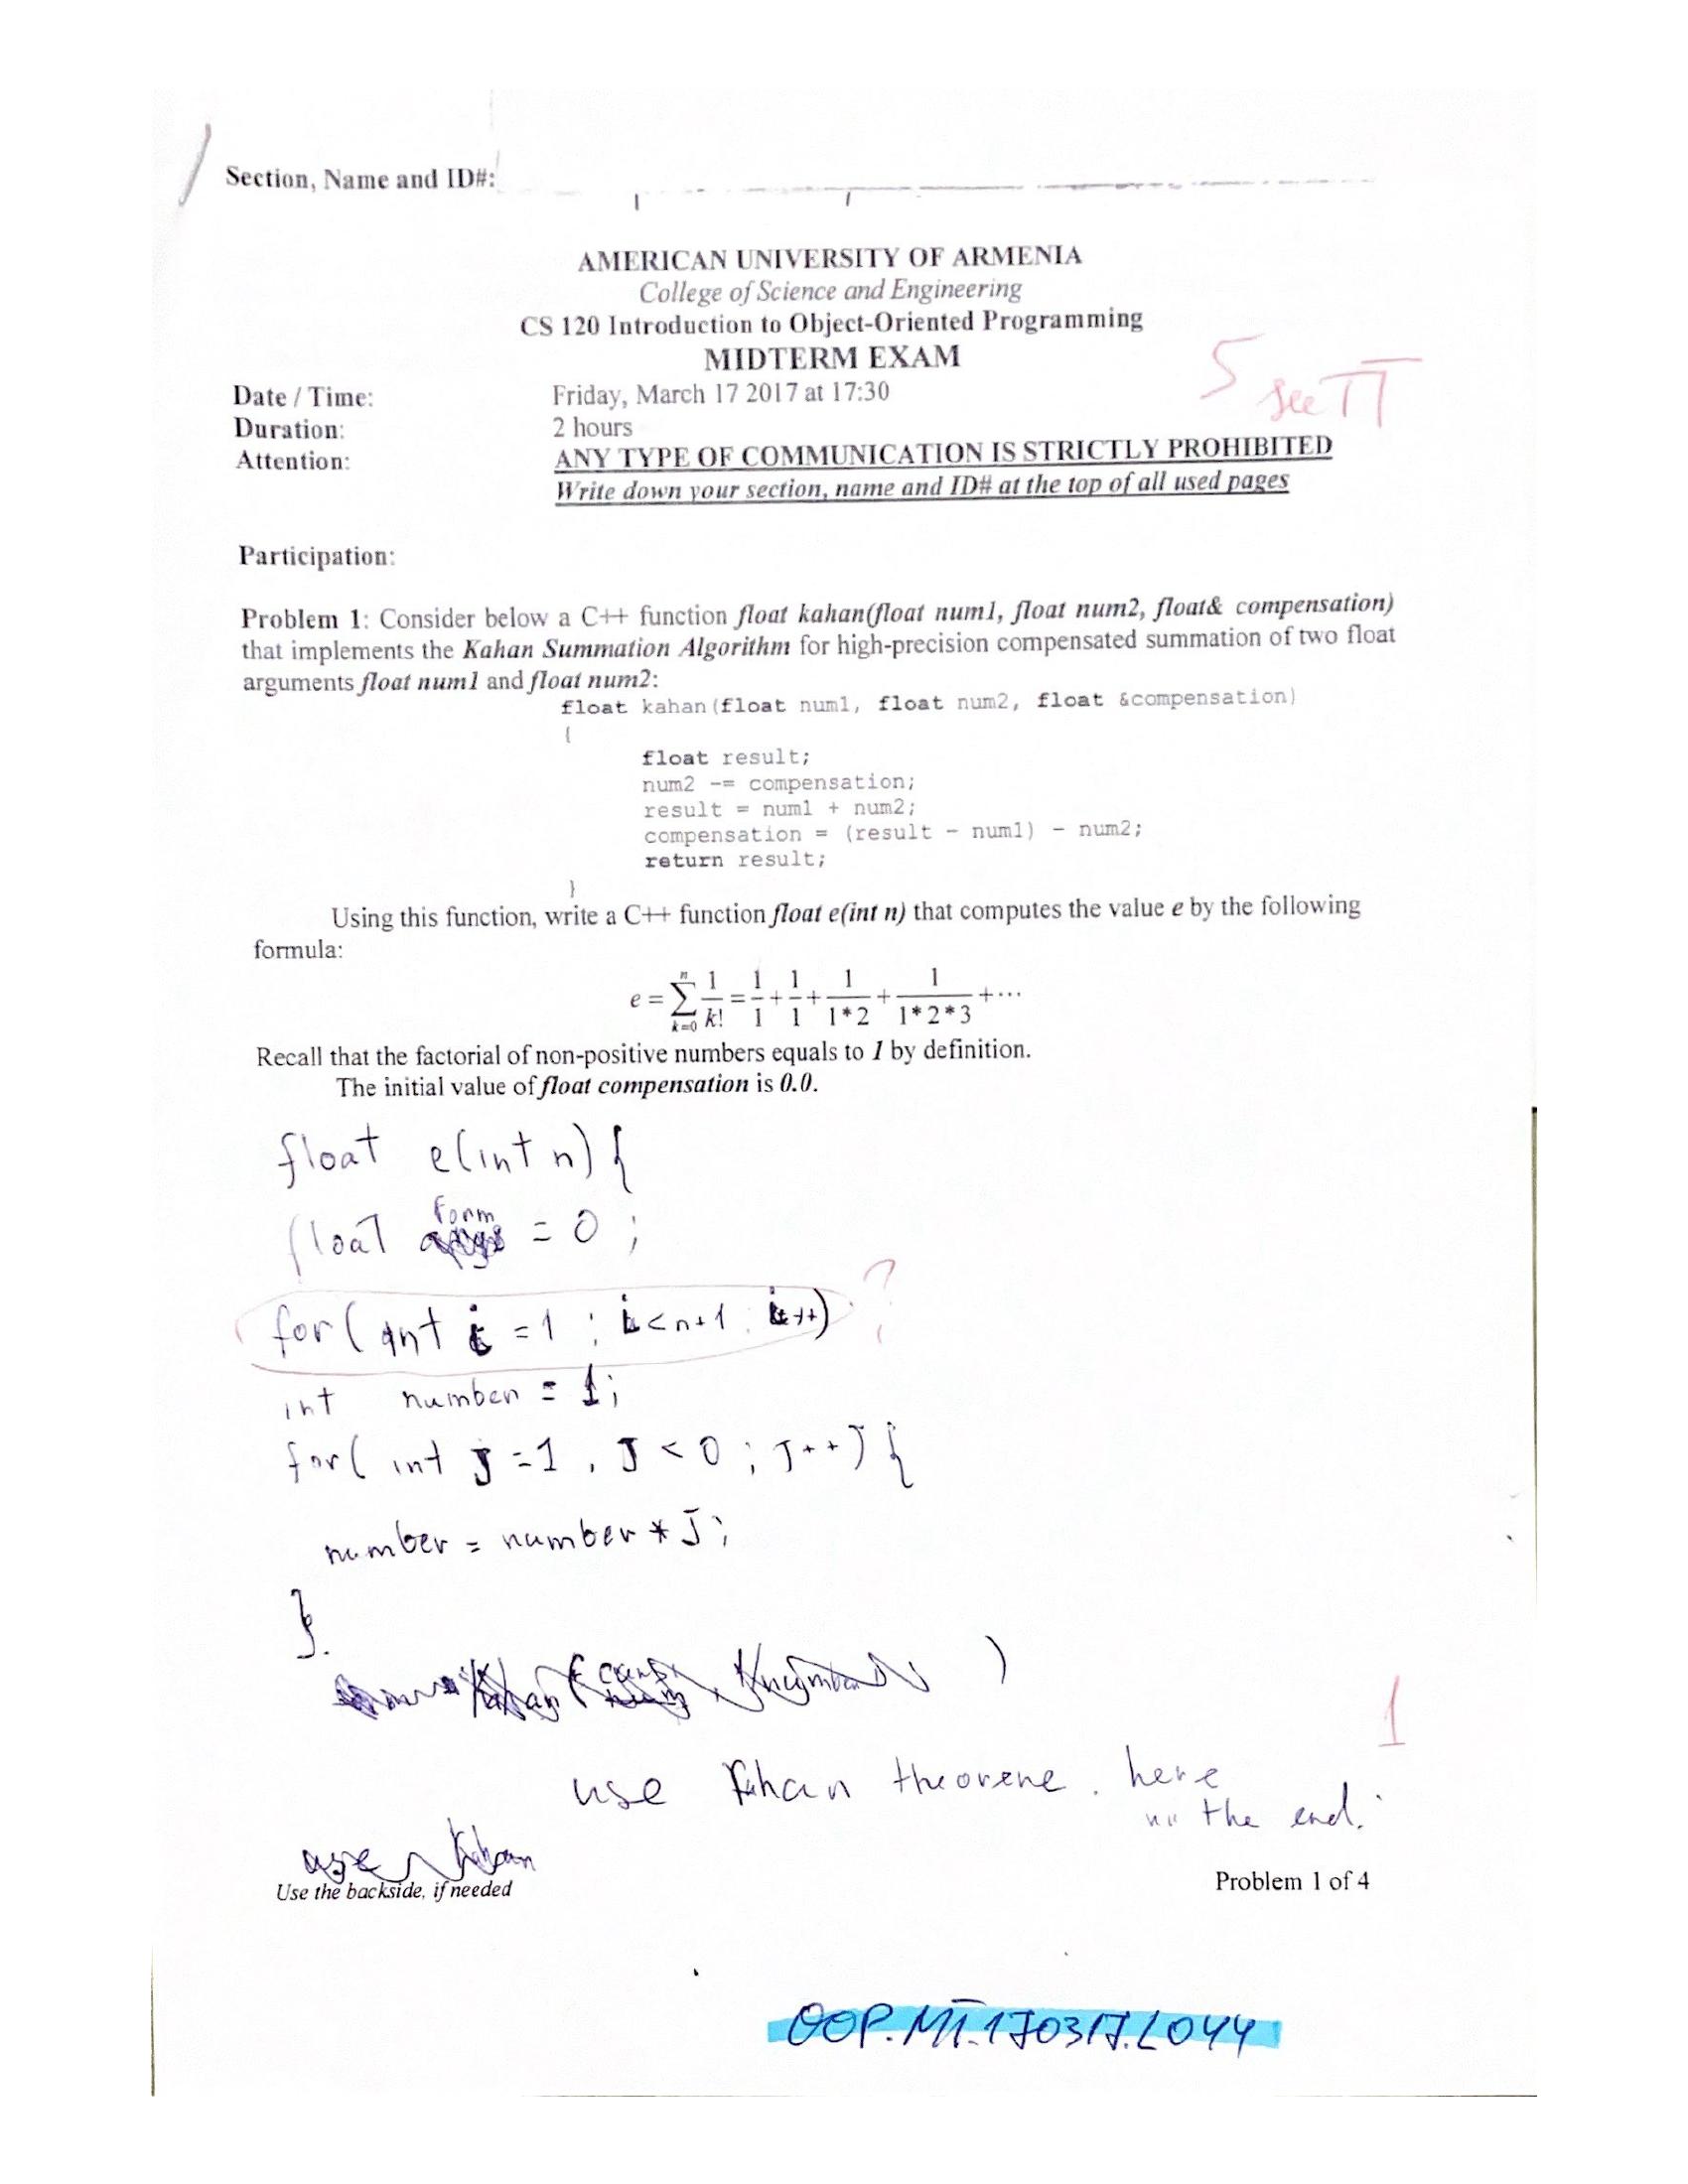 Section, Name and ID#:
AMERICAN UNIVERSITY OF ARMENIA
College of Science and Engineering
CS 120 Introduction to Object-Oriented Programming
MIDTERM EXAM
5 see
Date / Time: Friday, March 17 2017 at 17:30
Duration: 2 hours
Attention: ANY TYPE OF COMMUNICATION IS STRICTLY PROHIBITED
Write down your section, name and ID# at the top of all used pages
Participation:
Problem 1: Consider below a C++ function float kahan(float num1, float num2, float& compensation)
that implements the Kahan Summation Algorithm for high-precision compensated summation of two float
arguments float num1 and float num2:
float kahan(float num1, float num2, float &compensation)
{
float result;
num2 -= compensation;
result = num1 + num2;
compensation = (result - num1) - num2;
return result;
}
Using this function, write a C++ function float e(int n) that computes the value e by the following
formula:
e = ∑_{k=0}^{n} 1/k! = 1/1 + 1/1 + 1/1*2 + 1/1*2*3 + ⋯
Recall that the factorial of non-positive numbers equals to 1 by definition.
The initial value of float compensation is 0.0.
float e(int n) {
float form = 0 ;
for ( int i = 1 ; i < n+1 ; i++) ?
int number = 1;
for( int J = 1 , J < 0 ; J++) {
number = number * J ;
}
1
use theorene. here
the end.
use Kahan
Use the backside, if needed
Problem 1 of 4
OOP.MT.170317.L044